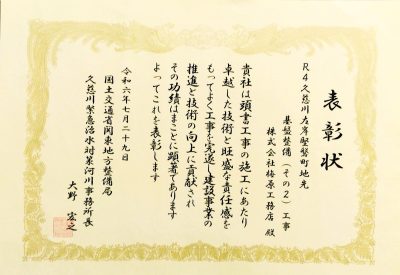 表彰状
R4久慈川左岸堅磐町地先
基盤整備(その2)工事
株式会社梅原工務店 殿
貴社は頭書工事の施工にあたり
卓越した技術と旺盛な責任感を
もってよく工事を完遂し建設事業の
推進と技術の向上に貢献され
その功績はまことに顕著であります
よってこれを表彰します
令和六年七月二十九日
国土交通省関東地方整備局
久慈川緊急治水対策河川事務所長
大野 宏之